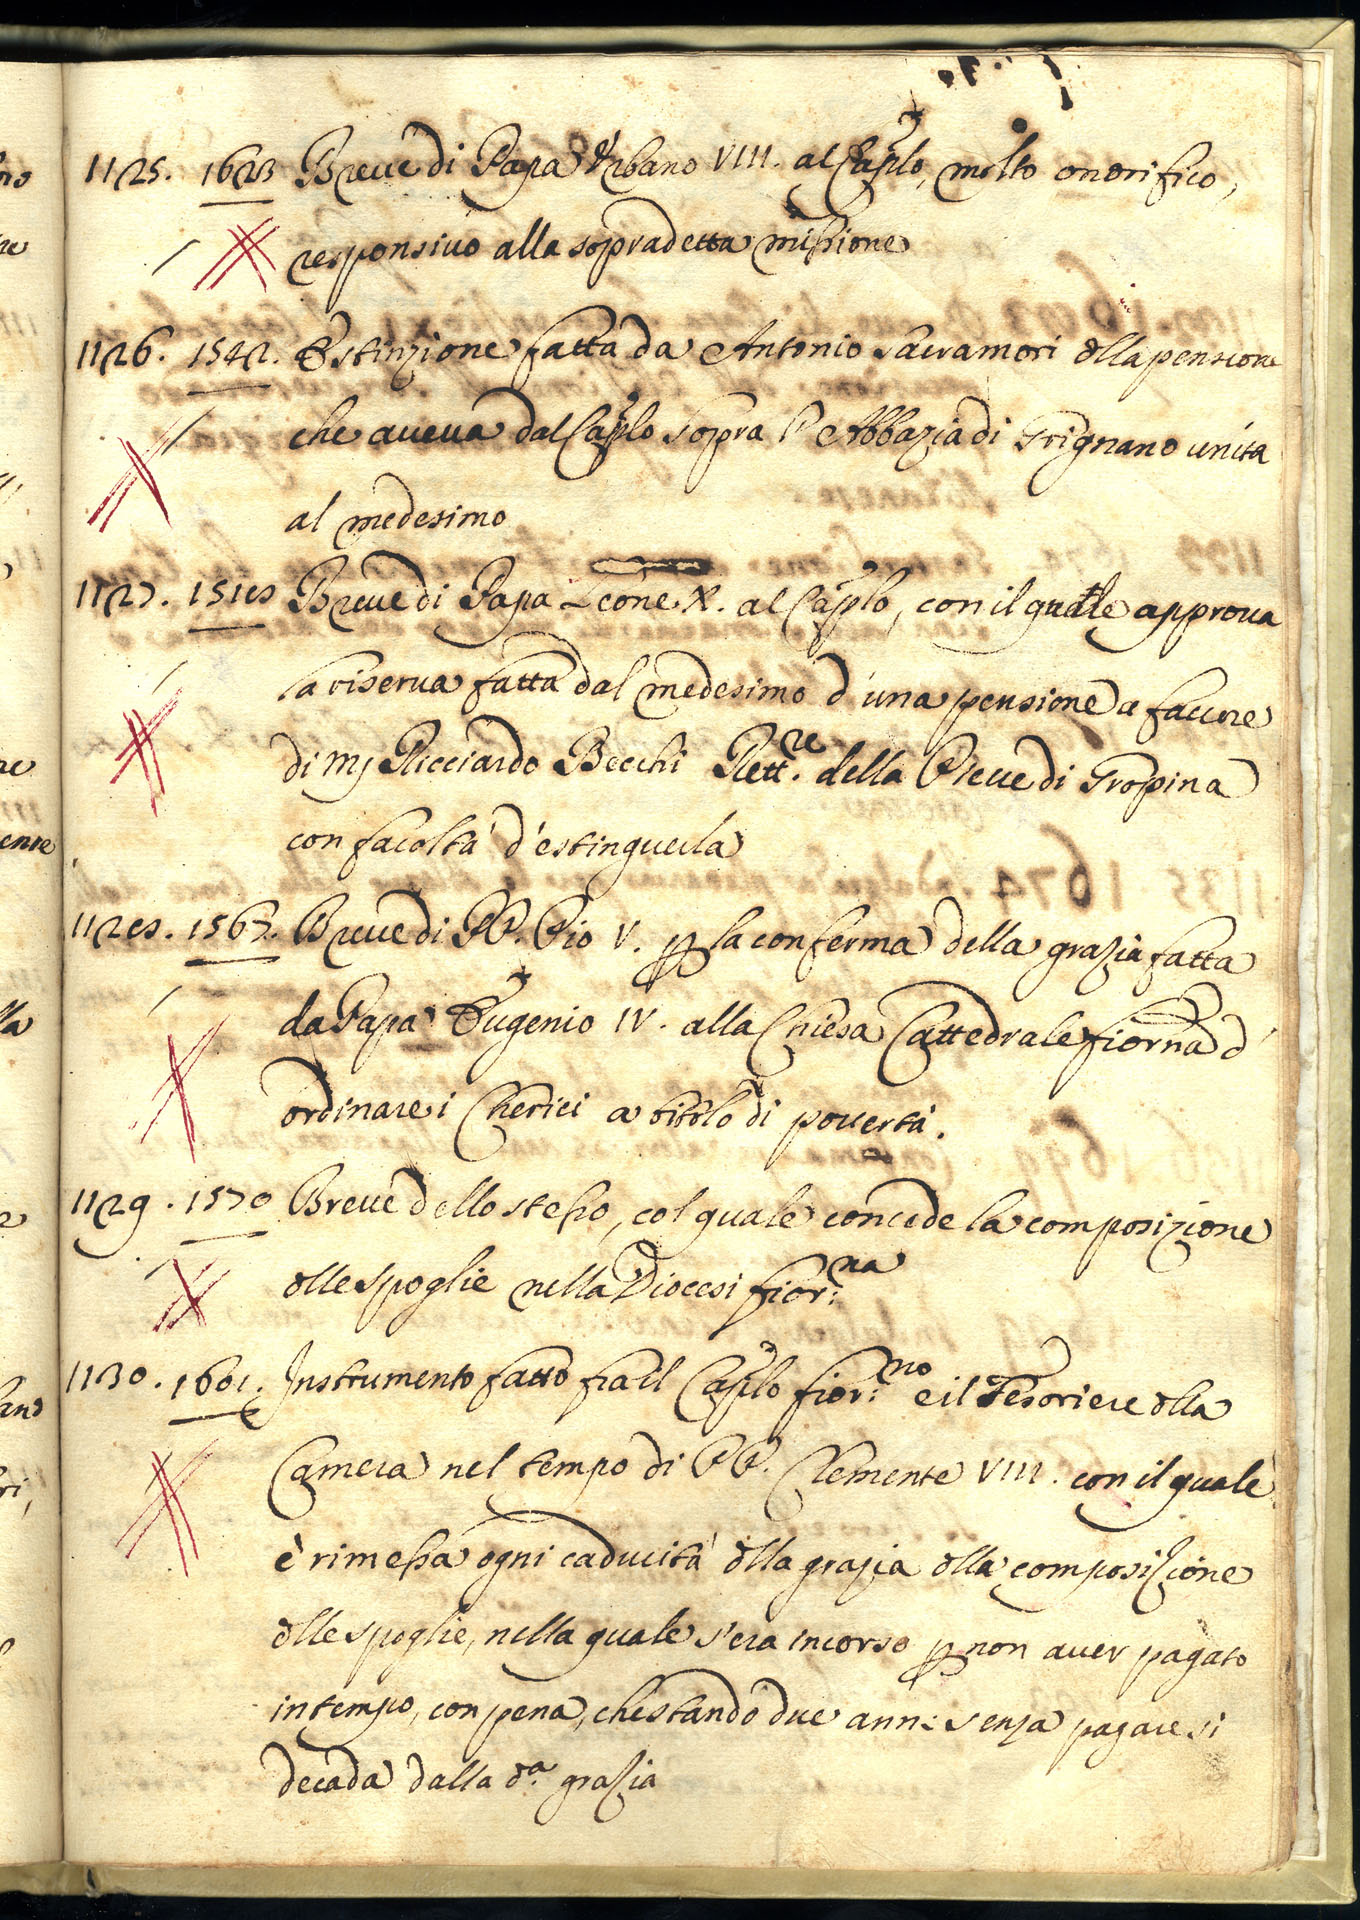 1125. 1623 Breve di Papa Urbano VIII. al Caplo, molto onorifico,
responsivo alla sopradetta missione
1126. 1542. Estinzione fatta da Antonio Sacramori dlla pensione
che aveva dal Caplo sopra l'Abbazia di Grignano unita
al medesimo
1127. 1518 Breve di Papa Leone X. al Caplo, con il quale approva
la riserva fatta dal medesimo d'una pensione a favore
di Mj Ricciardo Becchi Rett.re della Pieve di Gropina
con facoltà d'estinguerla
1128. 1567. Breve di PP. Pio V. p la conferma della grazia fatta
da Papa Eugenio IV. alla Chiesa Cattedrale fiorna d'
ordinare i Cherici a titolo di povertà.
1129. 1570 Breve dello stesso, col quale concede la composizione
dlle spoglie nella Diocesi fior:na
1130. 1601. Instrumento fatto fra il Caplo fior:no e il Tesoriere dlla
Camera nel tempo di PP. Clemente VIII. con il quale
è rimessa ogni caducità dlla grazia dlla composizione
dlle spoglie, nella quale s'era incorso p non aver pagato
in tempo, con pena, che stando due anni senza pagare si
decada dalla da. grazia